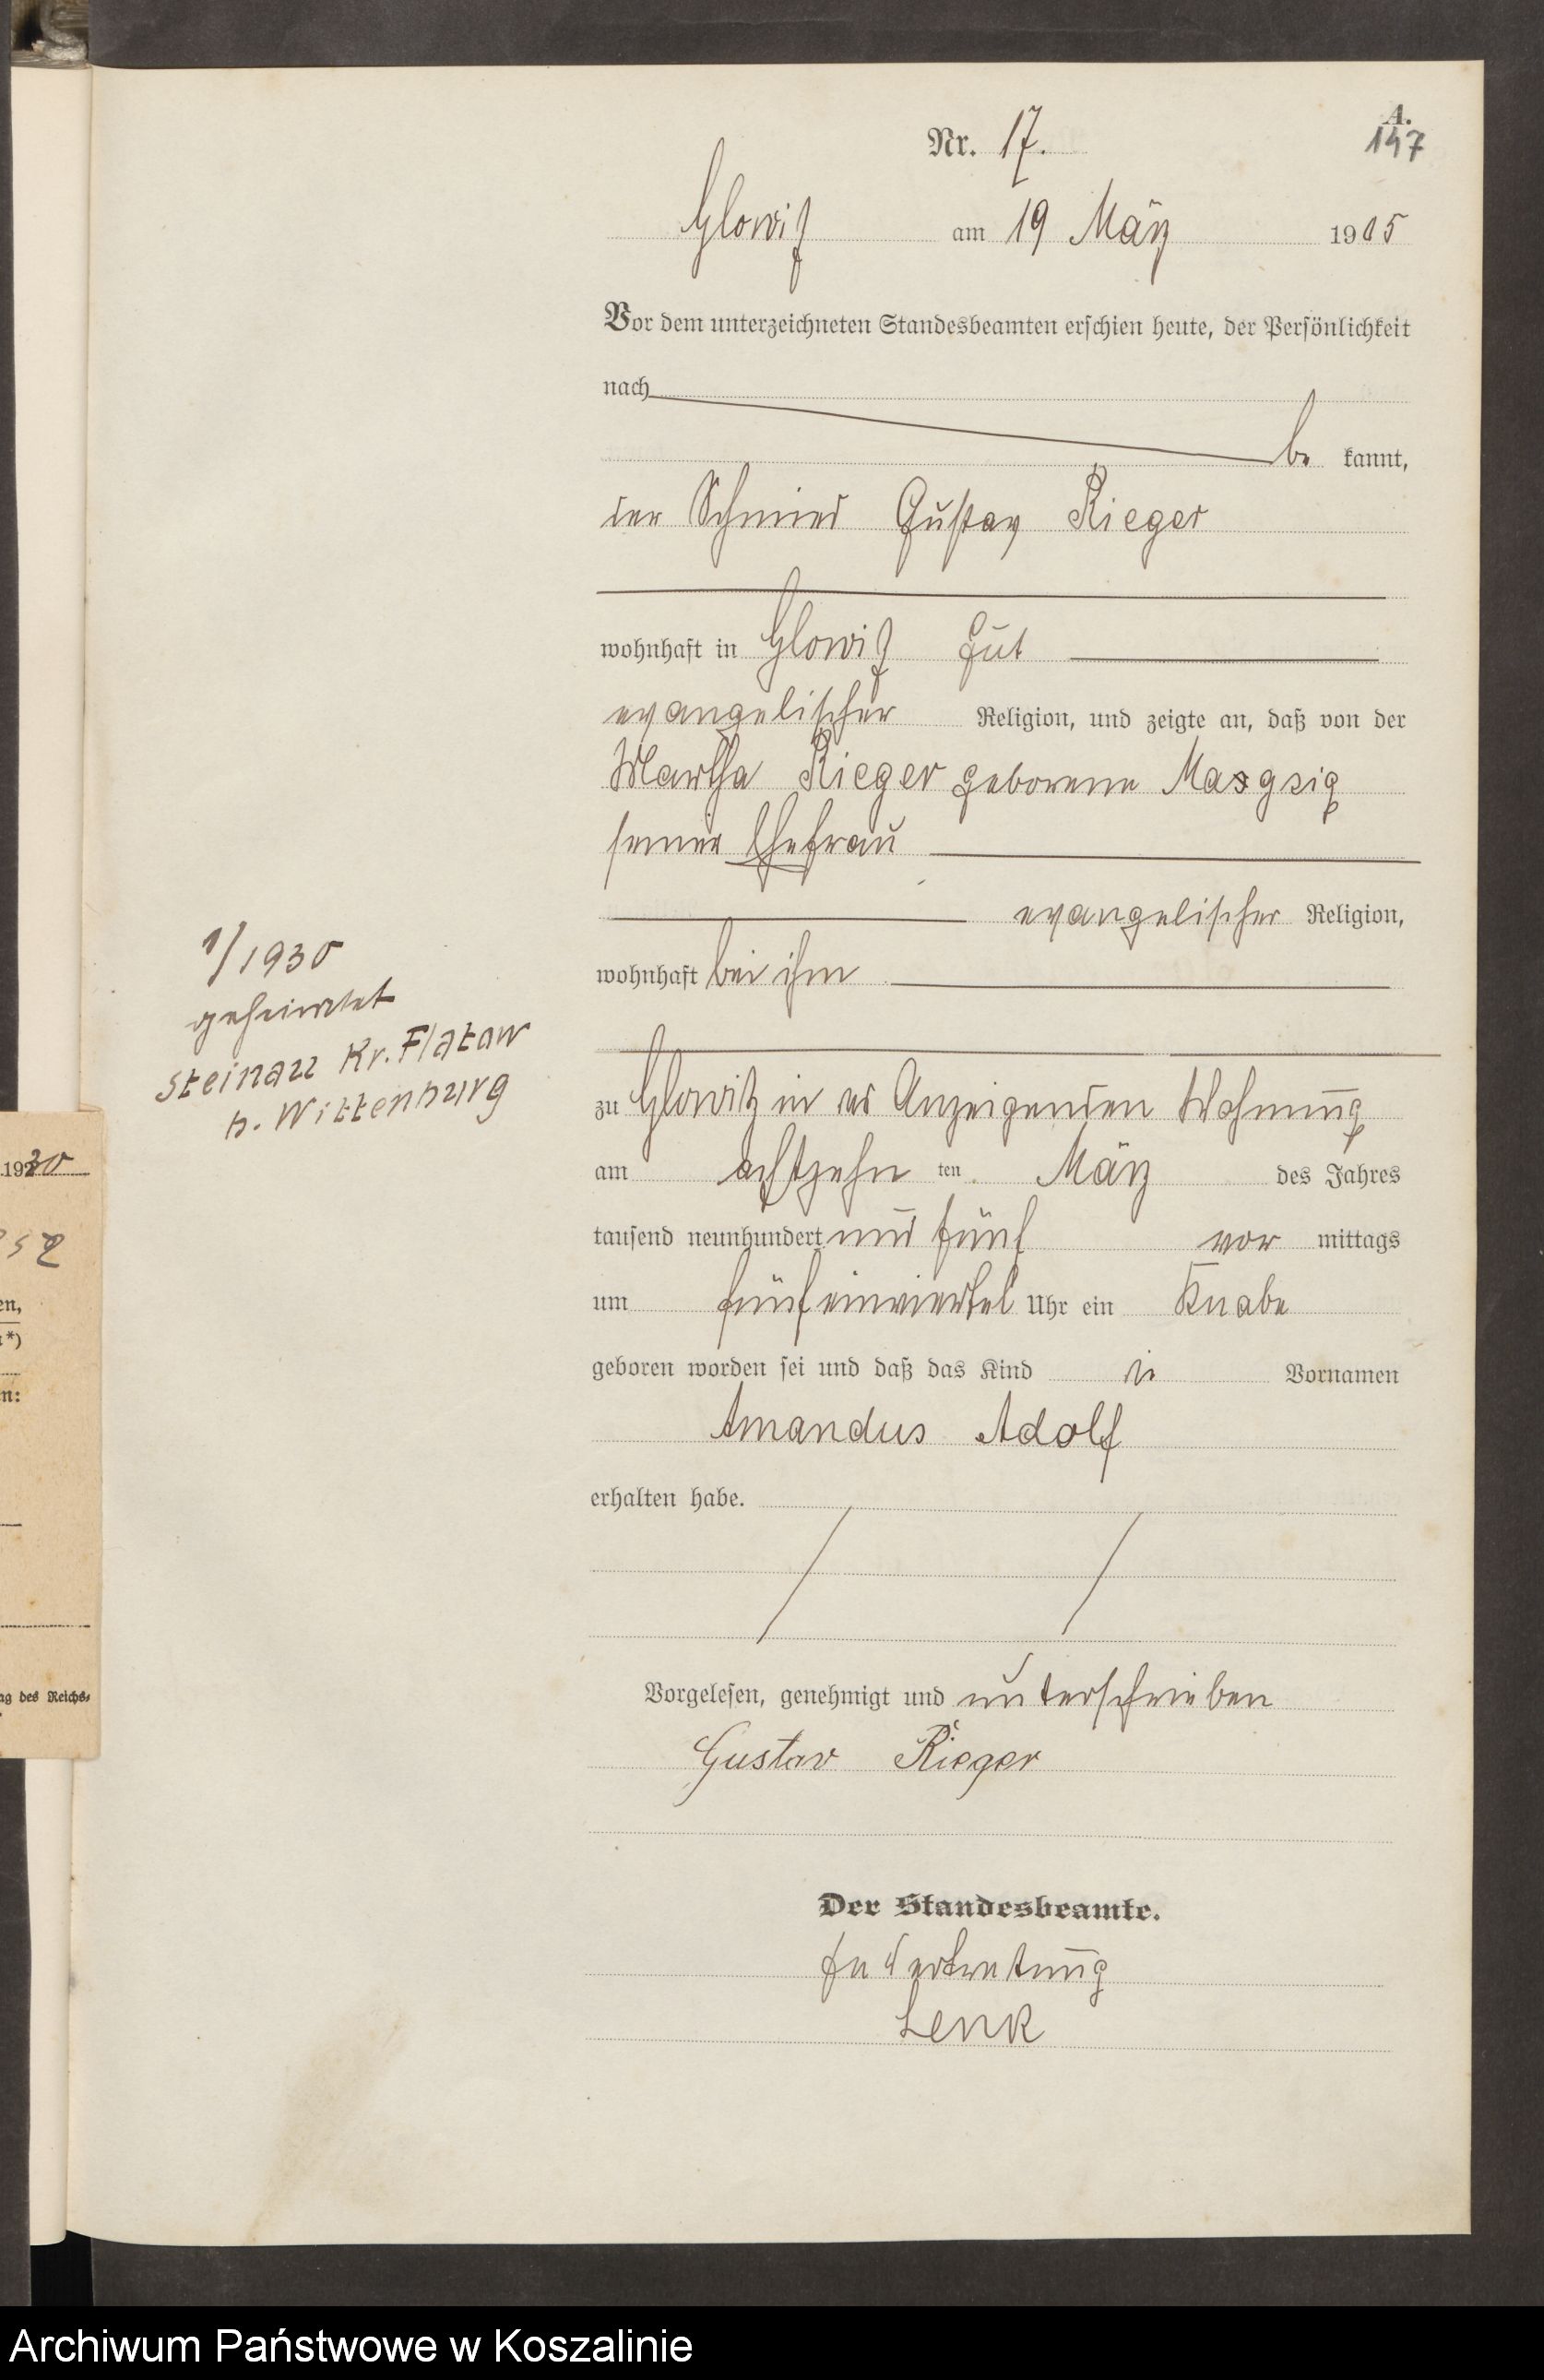 A.
147
Nr. 17.
Glowitz am 19 März 1905
Vor dem unterzeichneten Standesbeamten erschien heute, der Persönlichkeit
nach
be kannt,
der Schmied Gustav Rieger
wohnhaft in Glowitz Gut
evangelischer Religion, und zeigte an, daß von der
Martha Rieger geborene
seiner Ehefrau
evangelischer Religion,
wohnhaft bei ihm
1/1930
geheiratet
Steinau Kr. Flatow
b. Wittenburg
zu Glowitz in des Anzeigenden Wohnung
am achtzehn ten März des Jahres
tausend neunhundert und fünf vor mittags
um fünfeinviertel Uhr ein Knabe
geboren worden sei und daß das Kind die Vornamen
Amandus Adolf
erhalten habe.
Vorgelesen, genehmigt und unterschrieben
Gustav Rieger
Der Standesbeamte.
In Vertretung
Lenk
1930
52
en,
*)
n:
ng des Reichs-
Archiwum Państwowe w Koszalinie